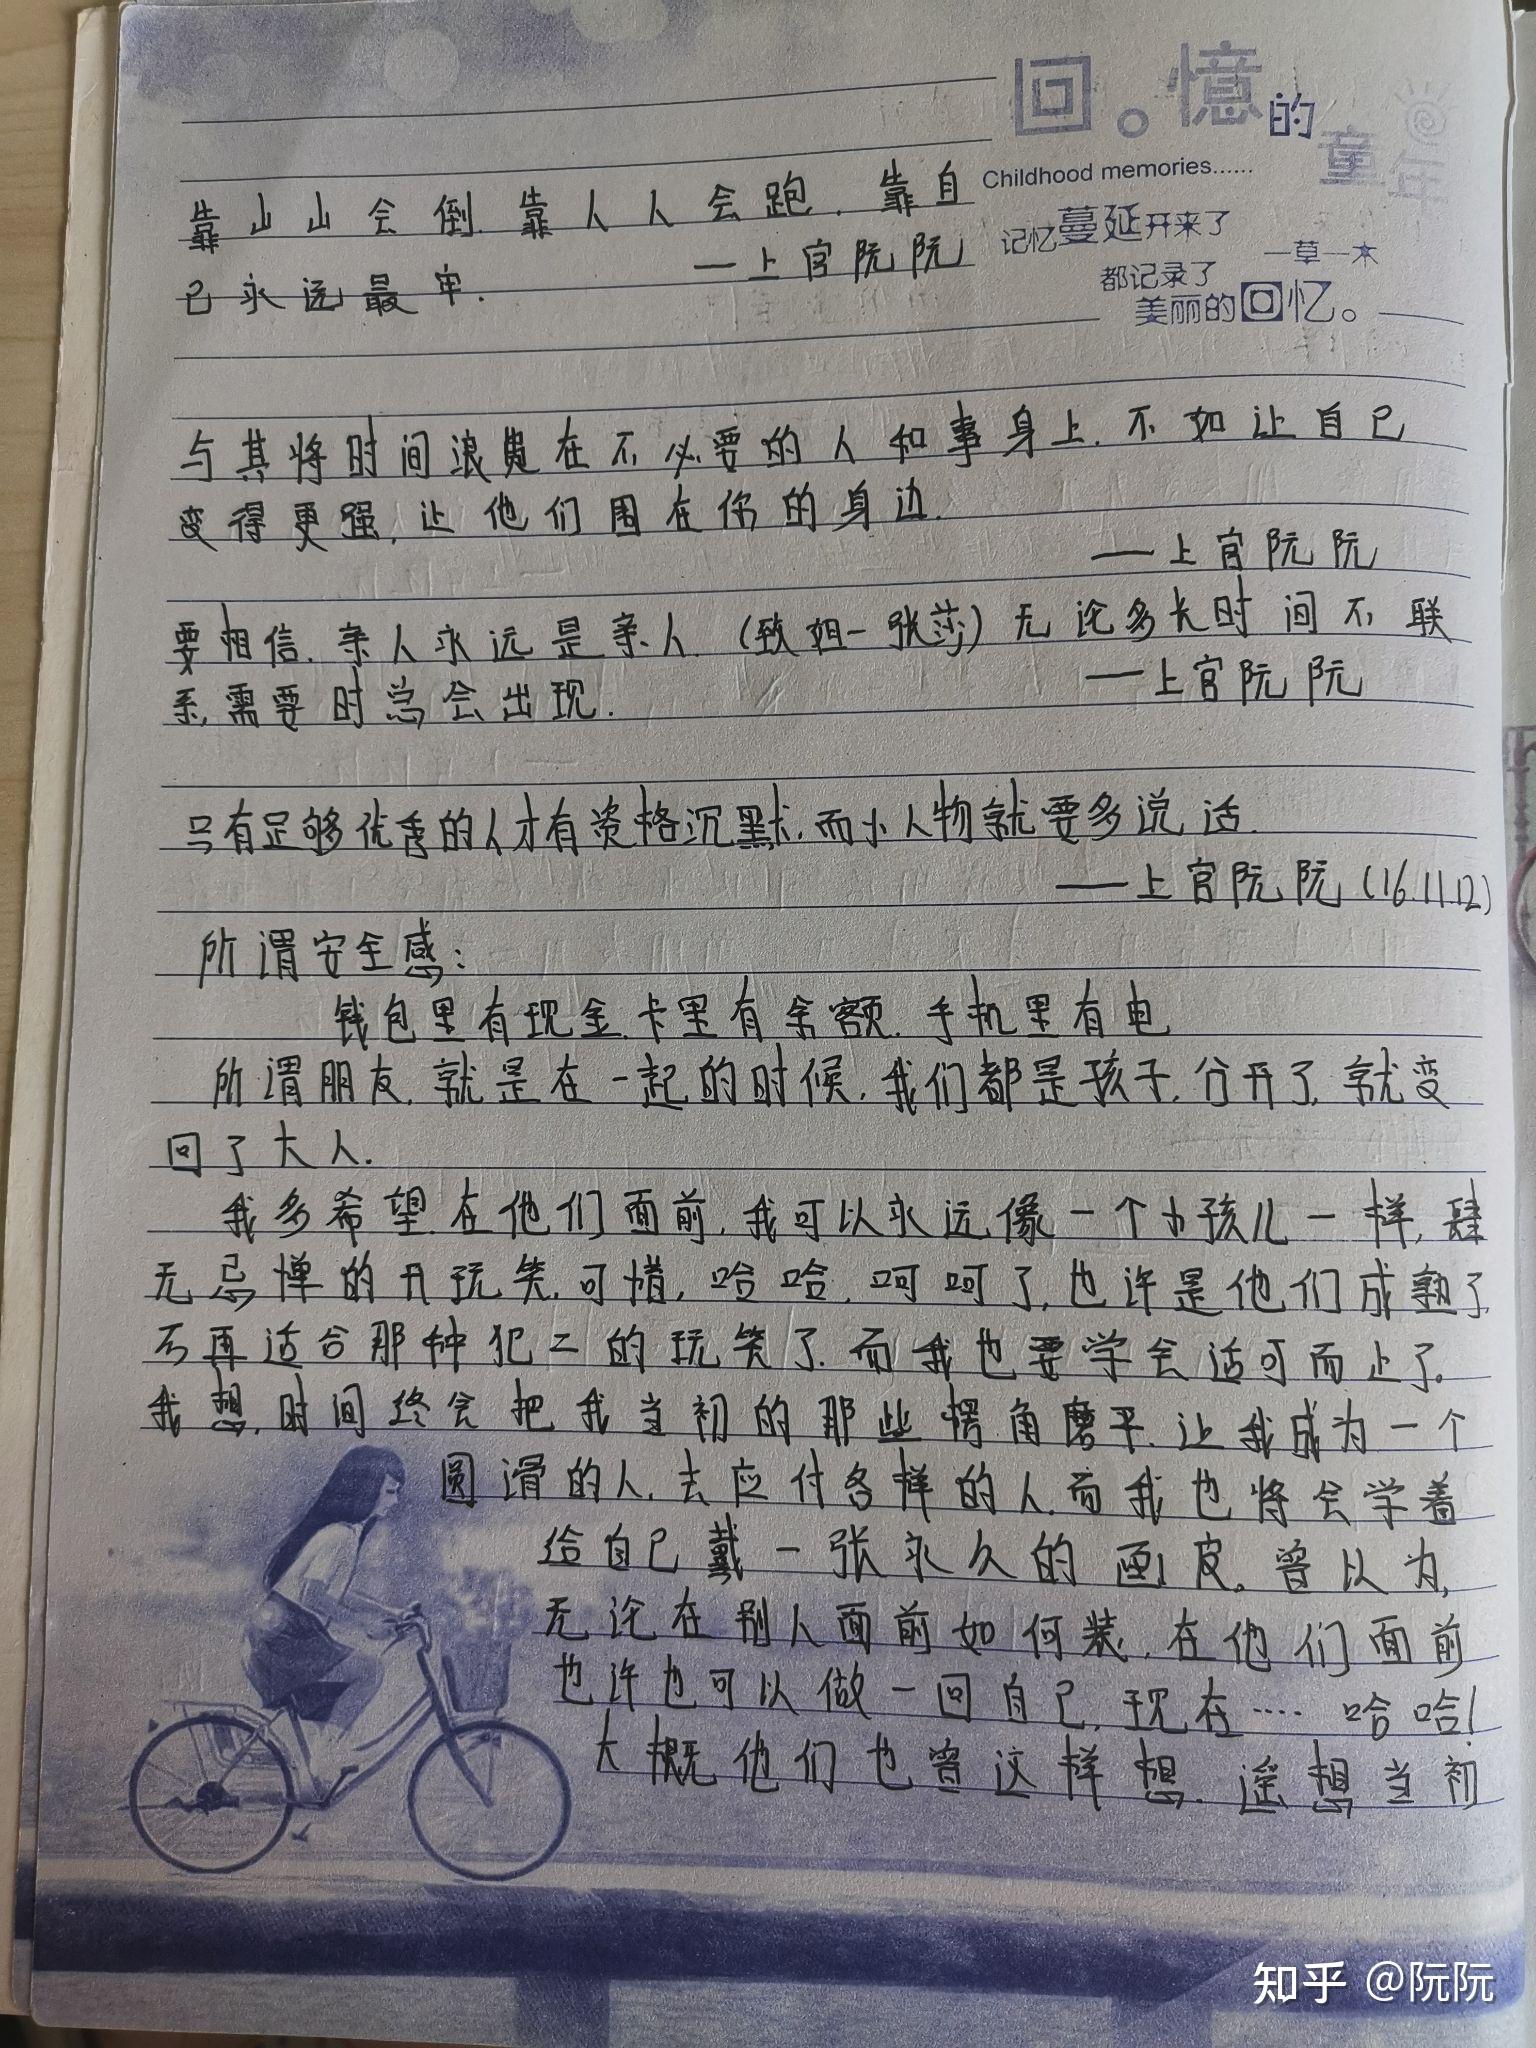 回。憶的童年
Childhood memories......
记忆蔓延开来了
一草一木
都记录了
美丽的回忆。
靠山山会倒.靠人人会跑.靠自
己永远最牢.
——上官阮阮
与其将时间浪费在不必要的人和事身上.不如让自己
变得更强,让他们围在你的身边.
——上官阮阮
要相信.亲人永远是亲人.(致姐—张莎)无论多长时间不联
系,需要时总会出现.
——上官阮阮
只有足够优秀的人才有资格沉默.而小人物就要多说话.
——上官阮阮(16.11.12)
所谓安全感:
钱包里有现金.卡里有余额.手机里有电
所谓朋友.就是在一起的时候,我们都是孩子.分开了,就变
回了大人.
我多希望.在他们面前,我可以永远像一个小孩儿一样,肆
无忌惮的开玩笑.可惜,哈哈.呵呵了,也许是他们成熟了,
不再适合那种犯二的玩笑了.而我也要学会适可而止了。
我想.时间终会把我当初的那些愣角磨平.让我成为一个
圆滑的人.去应付各样的人.而我也将会学着
给自己戴一张永久的画皮。曾以为,
无论在别人面前如何装.在他们面前
也许也可以做一回自己.现在···· 哈哈!
大概他们也曾这样想.遥想当初
知乎 @阮阮